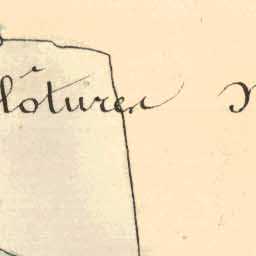 lôture